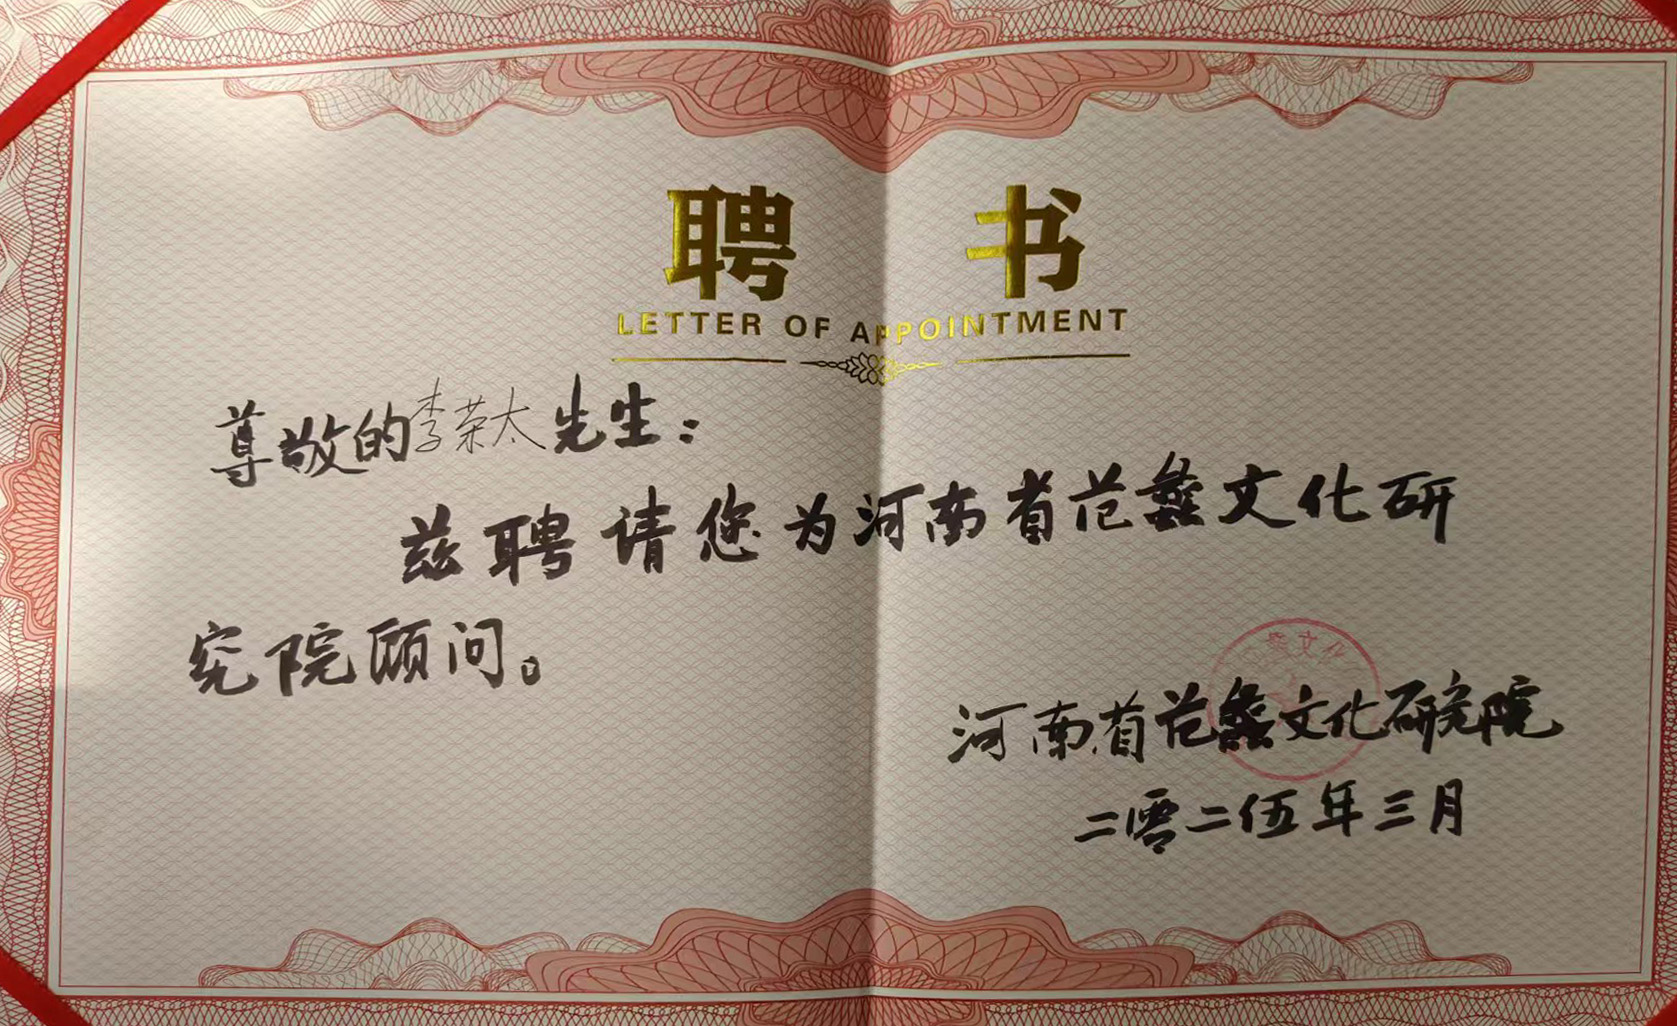 聘书
LETTER OF APPOINTMENT
尊敬的李荣太先生：
兹聘请您为河南省范蠡文化研
究院顾问。
蠡文化
河南省范蠡文化研究院
二零二伍年三月